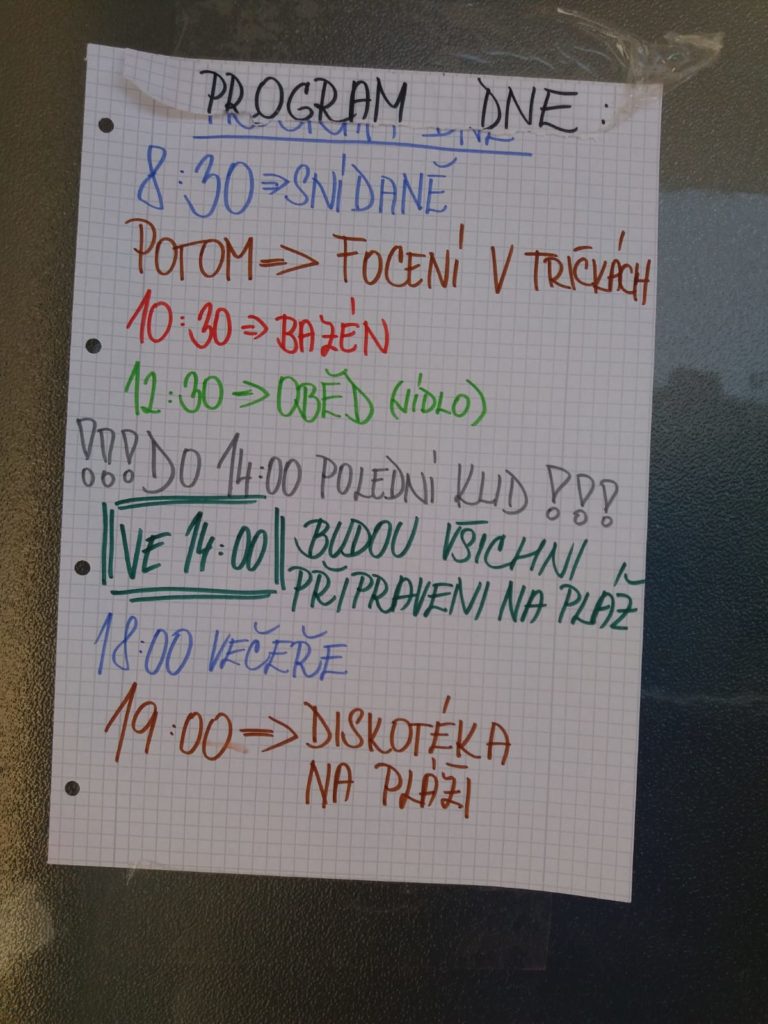 PROGRAM DNE:
PROGRAM DNE
8:30 => SNÍDANĚ
POTOM => FOCENÍ V TRIČKÁCH
10:30 => BAZÉN
12:30 => OBĚD (JÍDLO)
!!! DO 14:00 POLEDNÍ KLID !!!
VE 14:00 BUDOU VŠICHNI
PŘIPRAVENI NA PLÁŽ
18:00 VEČEŘE
19:00 => DISKOTÉKA
NA PLÁŽI